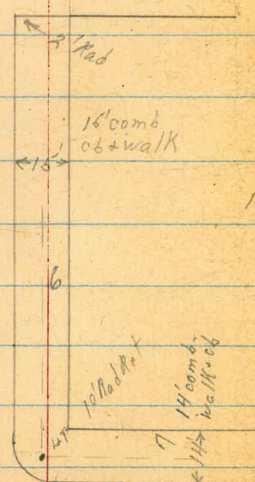 2' Rad
15' comb
cb & walk
15'
6
10' Rad Ret
14' comb.
walk & cb
14'
7